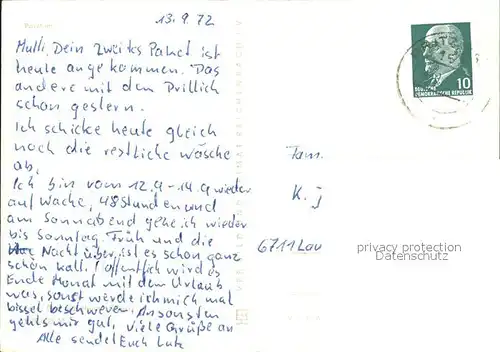 13.9.72
Mutti, Dein zweites Paket ist
heute angekommen. Das
andere mit dem Drillich
schon gestern.
Ich schicke heute gleich
noch die restliche Wäsche
ab.
Ich bin vom 12.9 - 14.9 wieder
auf Wache, 48 Stunden und
am Sonnabend gehe ich wieder
bis Sonntag. Früh und die
Nacht über, ist es schon ganz
schön kalt. Hoffentlich wird es
Ende Monat mit dem Urlaub
was, sonst werde ich mich mal
bissel beschweren. Ansonsten
gehts mir gut, viele Grüße an
Alle sendet Euch Lutz
10
DEUTSCHE
DEMOKRATISCHE REPUBLIK
Fam.
K. J
6711 Lau
privacy protection
Datenschutz